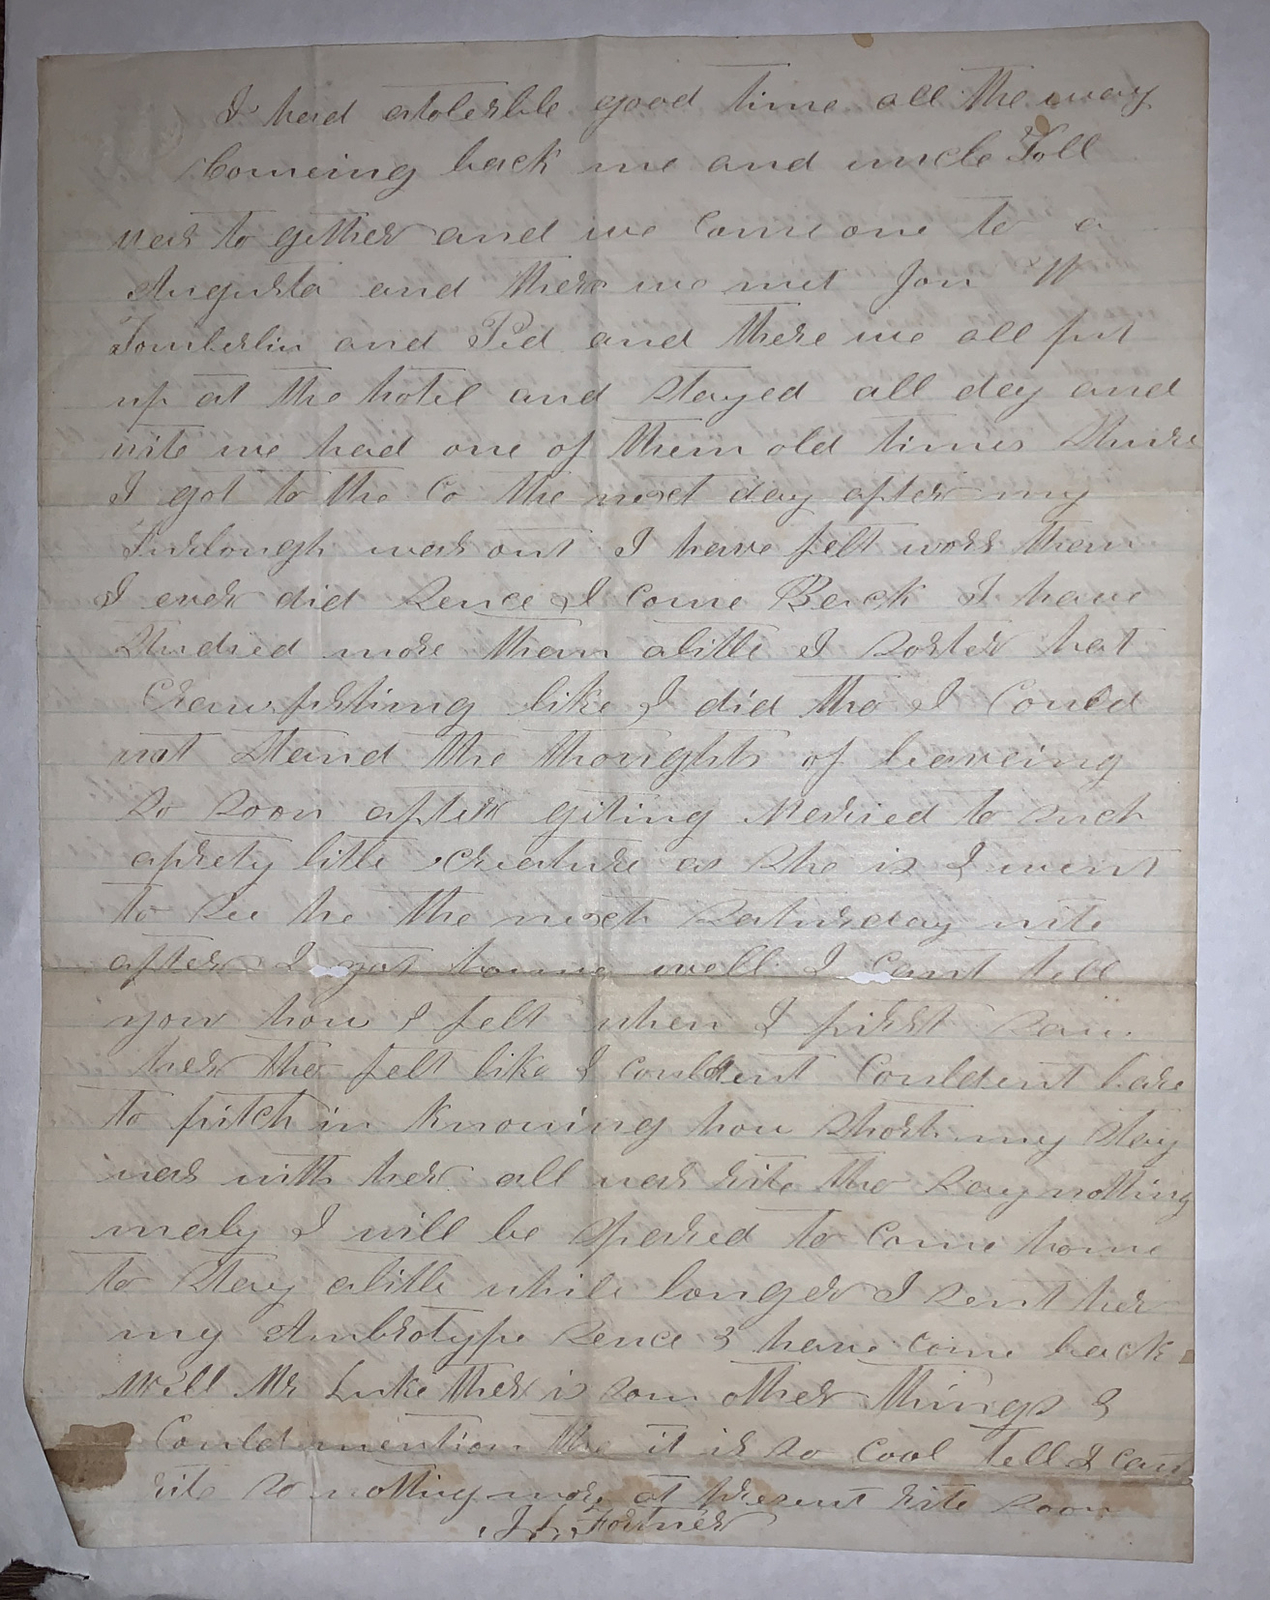 I had atolerble good time all the way
Comeing back me and uncle Toll
was to gether and we Come one to a
Augusta and there we met Jon W
Tomberlin and Pid and there we all put
up at the hotel and stayed all day and
nite we had one of them old times Shure
I got to the Co the next day after my
Furlough was out I have felt wors then
I ever did Sence I come Back I have
Studied more than alitle I sorter hat
like I did tho I Could
not Stand the thoughts of leaveing
So soon after giting Maried to such
aprety litle creature as She is I went
to See he the next Saturday nite
after I got home well I Cant tell
you how I felt when I first saw
her tho felt like I Couldent Couldent bare
to pitch in knowing how Short my stay
was with her all was rite tho Say nothing
maby I will be Spared to Come home
to Stay alitle while longer I sent her
my Ambrotype Sence I have come back
Well Mr Luke ther is som other things I
Could mention tho it is so Cool tell I cant
rite so nothing more at present rite soon
J. L. Forrner